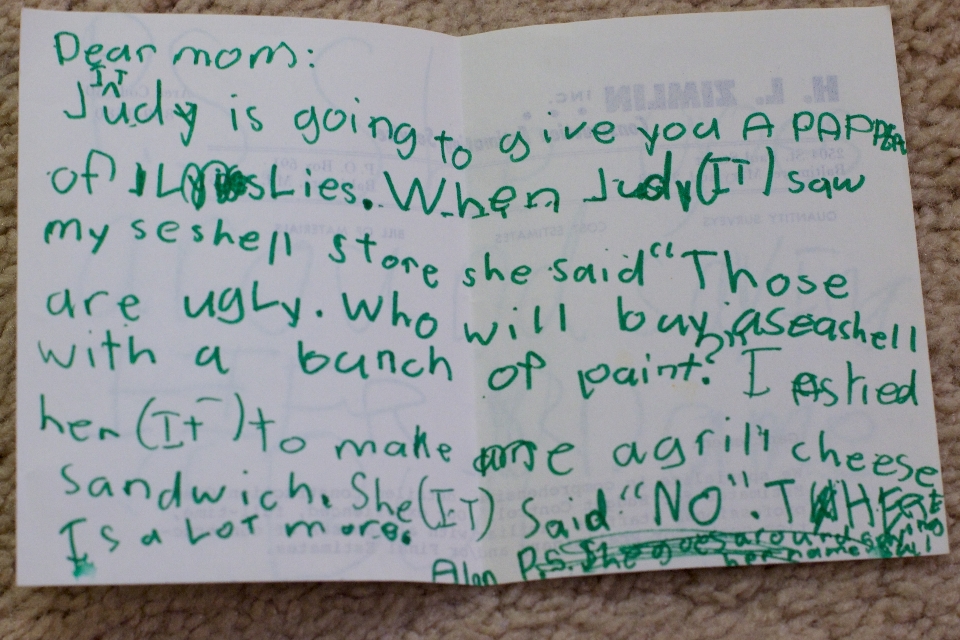 Dear mom:
IT
Judy is going to give you A PAP
of Lies. When Judy (IT) saw
my seshell store she said "Those
are ugly. Who will buy a seashell
with a bunch of paint? I asked
her (It) to make me a grill cheese
Sandwich. She (IT) Said "NO". THERE
Is a LOT more.
Alan P.S. She goes around saying
her name is
H. L. ZIMLIN INC.
QUANTITY SURVEYS
COST ESTIMATES
BILL OF MATERIALS